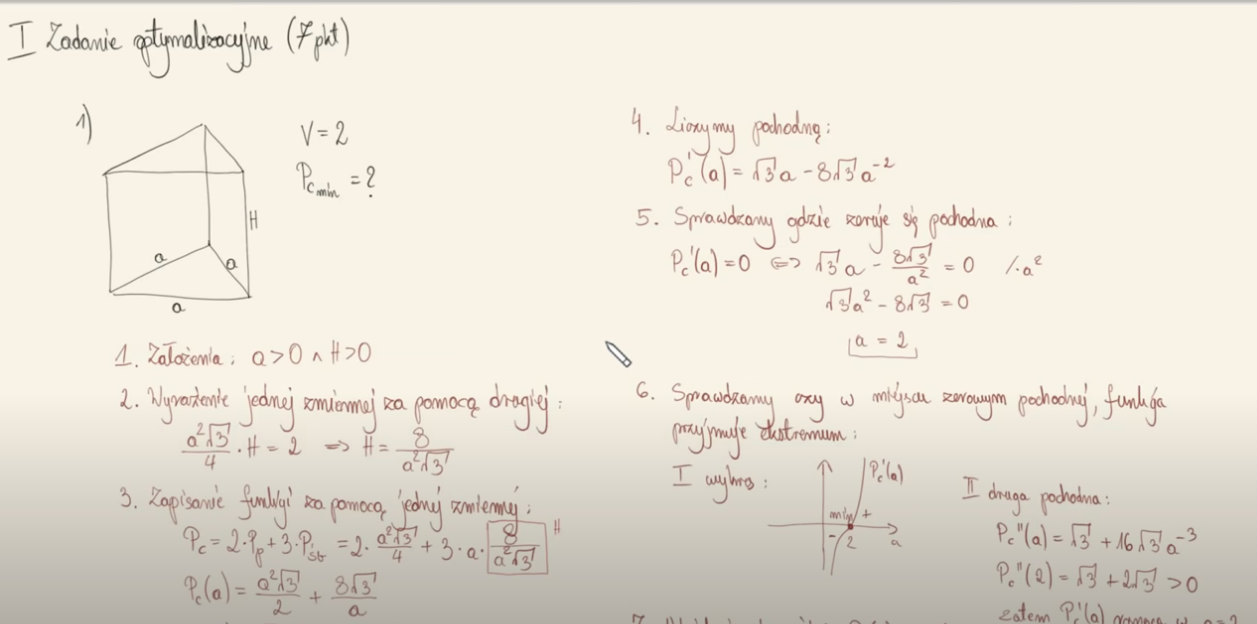 I Zadanie optymalizacyjne (7 pkt)
1)
V = 2
P_c min = ?
H
a
a
a
1. Założenia: a > 0 ∧ H > 0
2. Wyrażenie jednej zmiennej za pomocą drugiej:
a²√3/4 · H = 2 => H = 8/(a²√3)
3. Zapisanie funkcji za pomocą jednej zmiennej:
P_c = 2·P_p + 3·P_śb = 2· a²√3/4 + 3·a· 8/(a²√3) H
P_c(a) = a²√3/2 + 8√3/a
4. Liczymy pochodną:
P_c'(a) = √3 a - 8√3 a⁻²
5. Sprawdzamy gdzie zeruje się pochodna:
P_c'(a) = 0 <=> √3 a - 8√3/a² = 0 /·a²
√3 a² - 8√3 = 0
a = 2
6. Sprawdzamy czy w miejscu zerowym pochodnej, funkcja
przyjmuje ekstremum:
I wykres:
P_c'(a)
min +
- 2 a
II druga pochodna:
P_c''(a) = √3 + 16√3 a⁻³
P_c''(2) = √3 + 2√3 > 0
zatem P_c'(a) w a=2